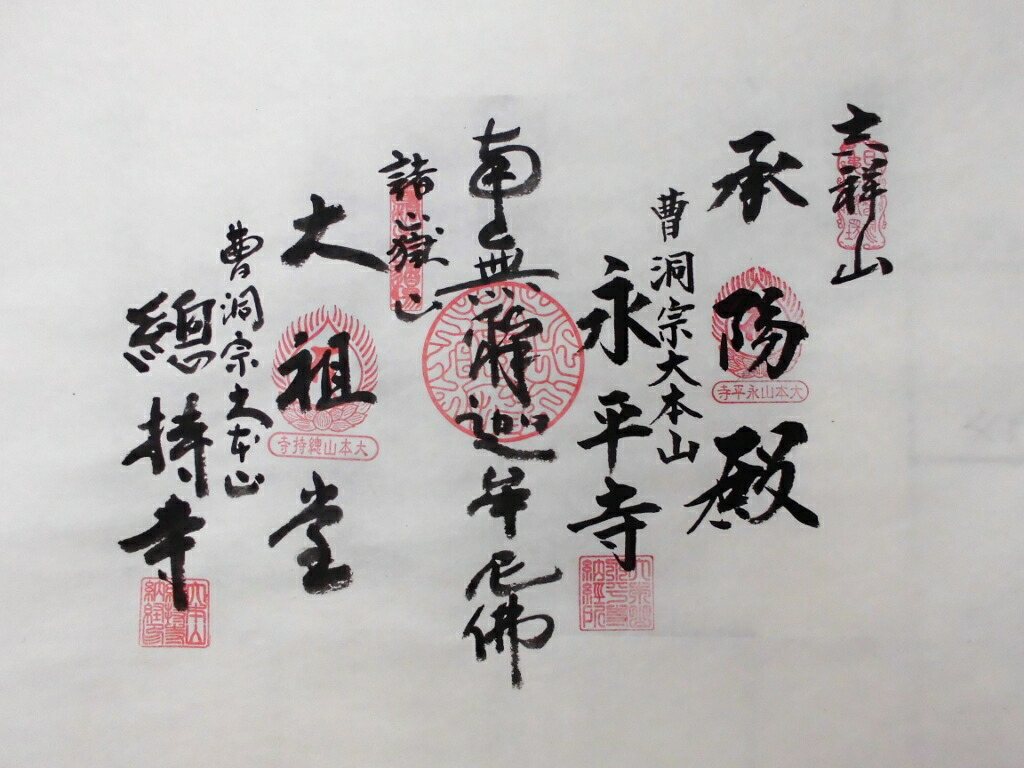 吉祥山
承陽殿
大本山永平寺
曹洞宗大本山
永平寺
南無釋迦牟尼佛
諸嶽山
大祖堂
大本山總持寺
曹洞宗大本山
總持寺